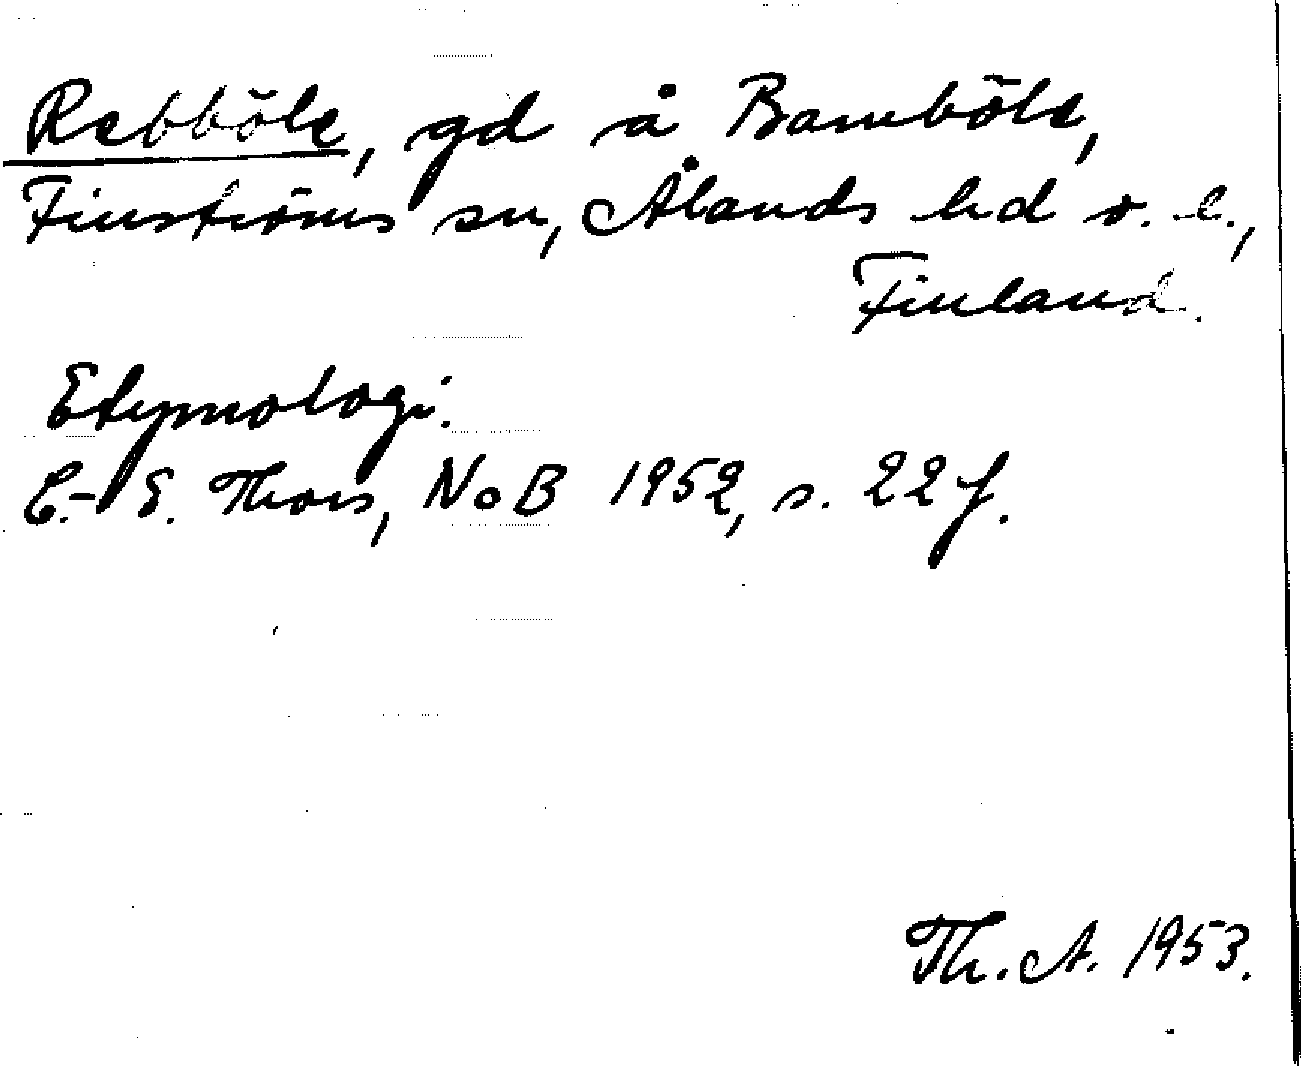 Rebböle, gd å Bamböle,
Finströms sn, Ålands hd o. l.,
Finland.
Etymologi.
C.-E. Thors, NoB 1952, s. 22 f.
Th. A. 1953.